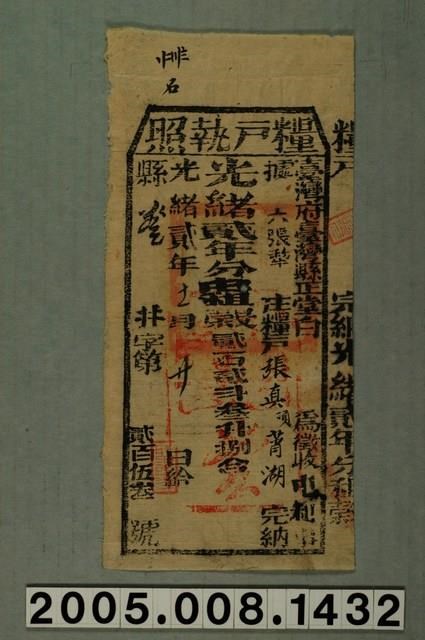 非
石
糧戶執照
糧戶 完納光緒貳年分租穀
臺灣府臺灣縣正堂白 為徵收屯租事
據六張犁庄糧戶張真 蒋湖完納
光緒貳年分屯租穀貳石貳斗叁升捌合
光緒貳年十一月廿日給
縣 非字第貳百伍叁號
2005.008.1432